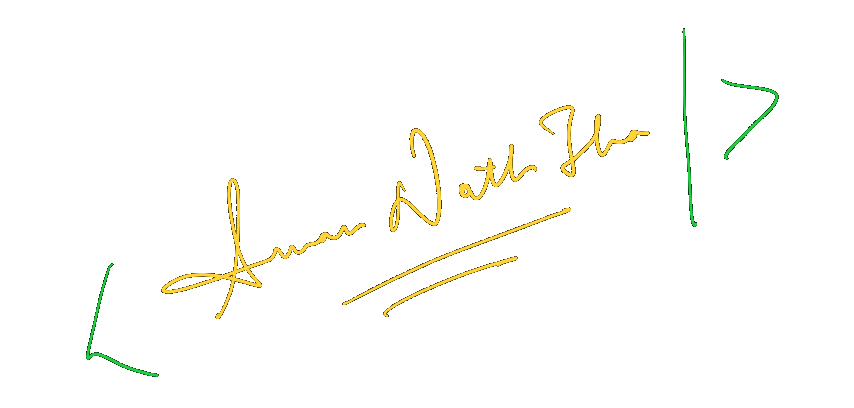 < Aman Nath Jha |>